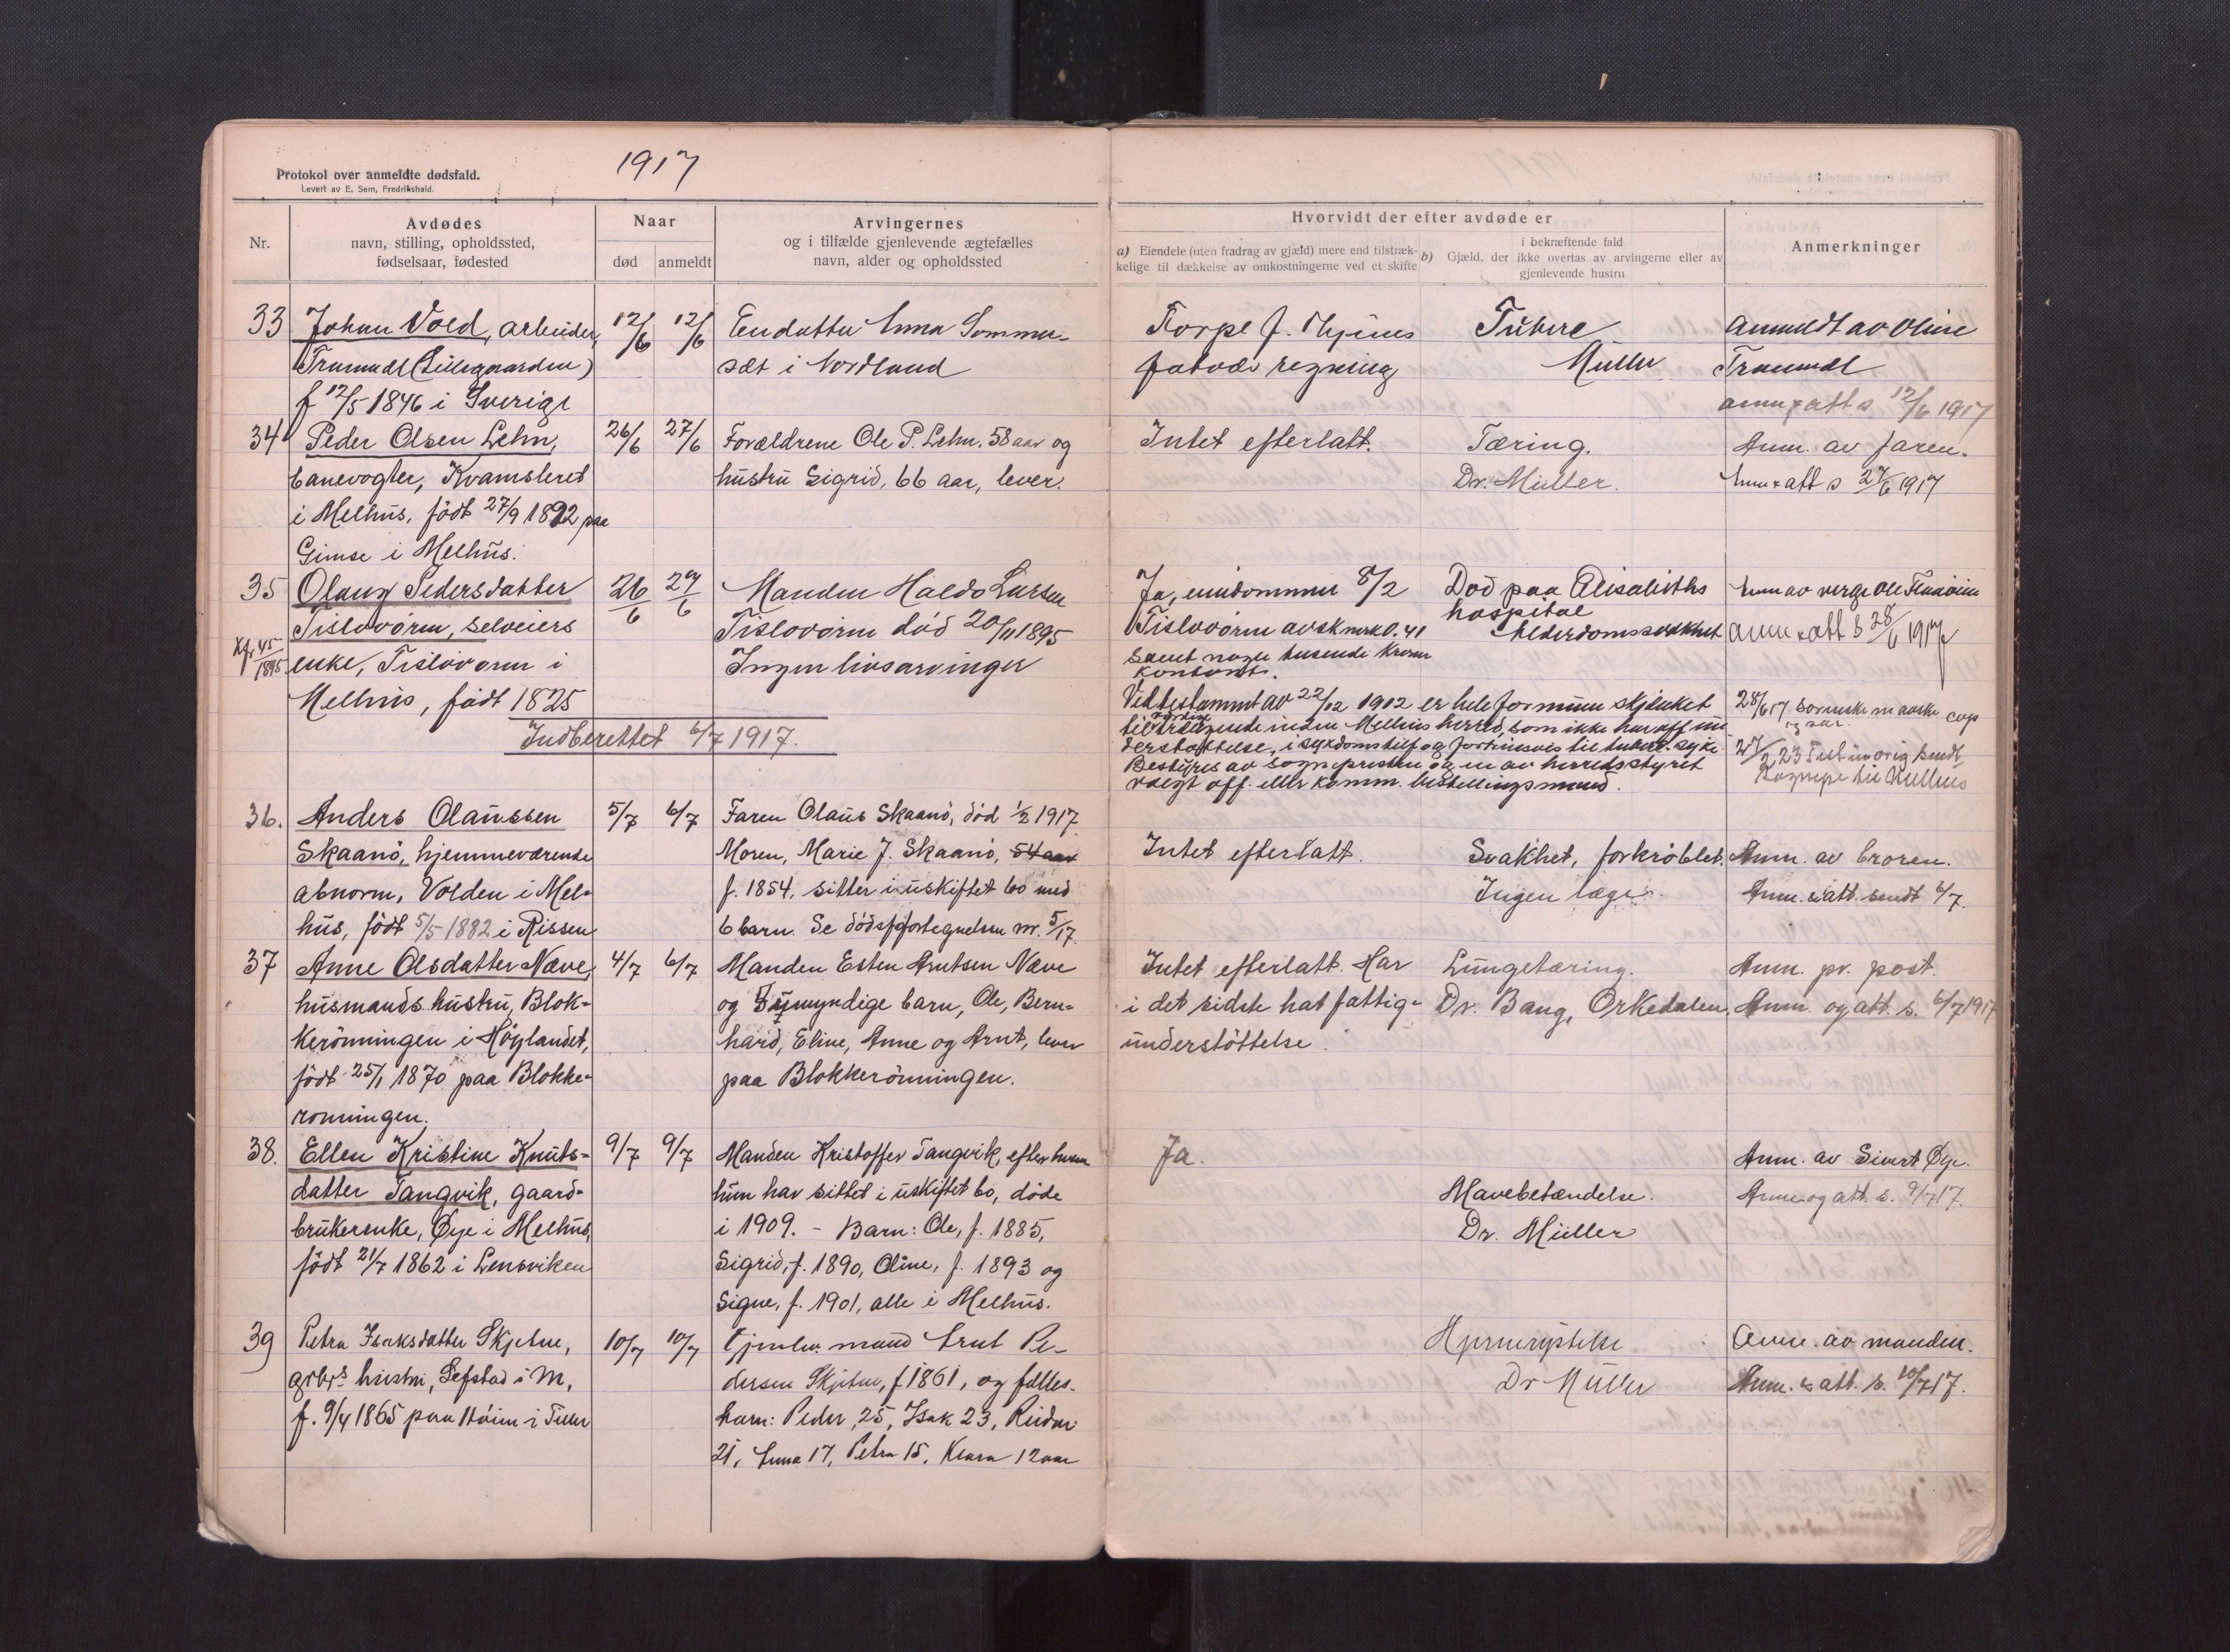 1917
Protokol over anmeldte dødsfald.
Levert av E. Sem, Fredrikshald.
Nr.
Avdødes
navn, stilling, opholdssted,
fødselsaar, fødested
Naar
død
anmeldt
Arvingernes
og i tilfælde gjenlevende ægtefælles
navn, alder og opholdssted
Hvorvidt der efter avdøde er
a) Eiendele (uten fradrag av gjæld) mere end tilstræk-
kelige til dækkelse av omkostningerne ved et skifte
b) Gjæld, der
i bekræftende fald
ikke overtas av arvingerne eller av
gjenlevende hustru
Anmerkninger
33
Johan Vold, arbeider,
(Lillegaarden)
f 12/5 1846 i Sverige
12/6
12/6
En datter Anna
sæt i Nordland
regning
Tuberc
Müller
Anmeldt av Oline
12/6 1917
34
Peder Olsen Lehn,
banevogter, Kvamsleret
i Melhus, født 27/9 1892 paa
Gimse i Melhus.
26/6
27/6
Forældrene Ole P. Lehn, 58 aar og
hustru Sigrid, 66 aar, lever.
Intet efterlatt.
Tæring.
Dr. Müller.
Anm. av faren.
Anm & att s 27/6 1917
35
Olaug Pedersdatter
Tislovorm, selveiers
enke, Tislovorm i
Melhus, født 1825
45
1895
26/6
27/6
Manden Haldo Larsen
Tislovorm død 20/11 1895
Ingen livsarvinger
Ja, eiendommen 8/2
Tislovorm av sk mrk 0.41
samt nogen tusende kroner
kontant.
Død paa Elisabeths
hospital
Alderdomssvakhet
Anm av verge Ole
Anm & att s 28/6 1917
Ved testament av 22/12 1912 er hele formuen skjenket
til trængende inden Melhus herred, som ikke har off un
derstøttelse, i sykdomstilf og fortrinsvis til tuberc. syke
Bestyres av sognepresten og en av herredsstyret
valgt off. eller komm. bestillingsmand.
28/6 17
27/2 23 Test in orig sendt
Sognepr til Melhus
Indberettet 6/7 1917.
36.
Anders Olaussen
Skaanö, hjemmeværende
abnorm, Volden i Mel-
hus, født 5/5 1882 i Rissen
5/7
6/7
Faren Olaus Skaanö, død 1/2 1917
Moren, Marie J. Skaanö, 54 aar
f. 1854, sitter i uskiftet bo med
6 barn. Se dödsfortegnelsen nr. 5/17.
Intet efterlatt.
Svakhet, forkröblet.
Ingen læge.
Anm. av broren.
Anm. & att. sendt 6/7.
37
Anne Olsdatter Næve,
husmands hustru, Blok-
kerönningen i Höylandet,
født 25/1 1870 paa Blokke-
rønningen.
4/7
6/7
Manden Esten Arntsen Næve
og 5 umyndige barn, Ole, Bern-
hard, Eline, Anne og Arnt, lever
paa Blokkerönningen.
Intet efterlatt. Har
i det sidste hat fattig-
understöttelse.
Lungetæring.
Dr. Bang, Orkedalen.
Anm. pr. post.
Anm. og att. s. 6/7 1917
38.
Ellen Kristine Knuts-
datter Tangvik, gaard-
brukerenke, Øye i Melhus,
født 21/7 1862 i Lensviken
9/7
9/7
Manden Kristoffer Tangvik, efter hvem
hun har sittet i uskiftet bo, døde
i 1909. - Barn: Ole, f. 1885,
Sigrid, f. 1890, Oline, f. 1893 og
Signe, f. 1901, alle i Melhus.
Ja.
Mavebetændelse.
Dr. Müller
Anm. av Sivert Øye.
Anm. og att. s. 9/7 17.
39
Petra Isaksdatter Skjetne,
grbrs hustru, Lefstad i M,
f. 9/4 1865 paa i Tiller
10/7
10/7
Gjenlev. mand Arnt Pe-
dersen Skjetne, f 1861, og fælles-
barn: Peder 25, Isak 23, Reidar
21, Anna 17, Petra 15, Klara 12 aar
Hjernerystelse
Dr Müller
Anm. av manden.
Anm. & att. s. 10/7 17.